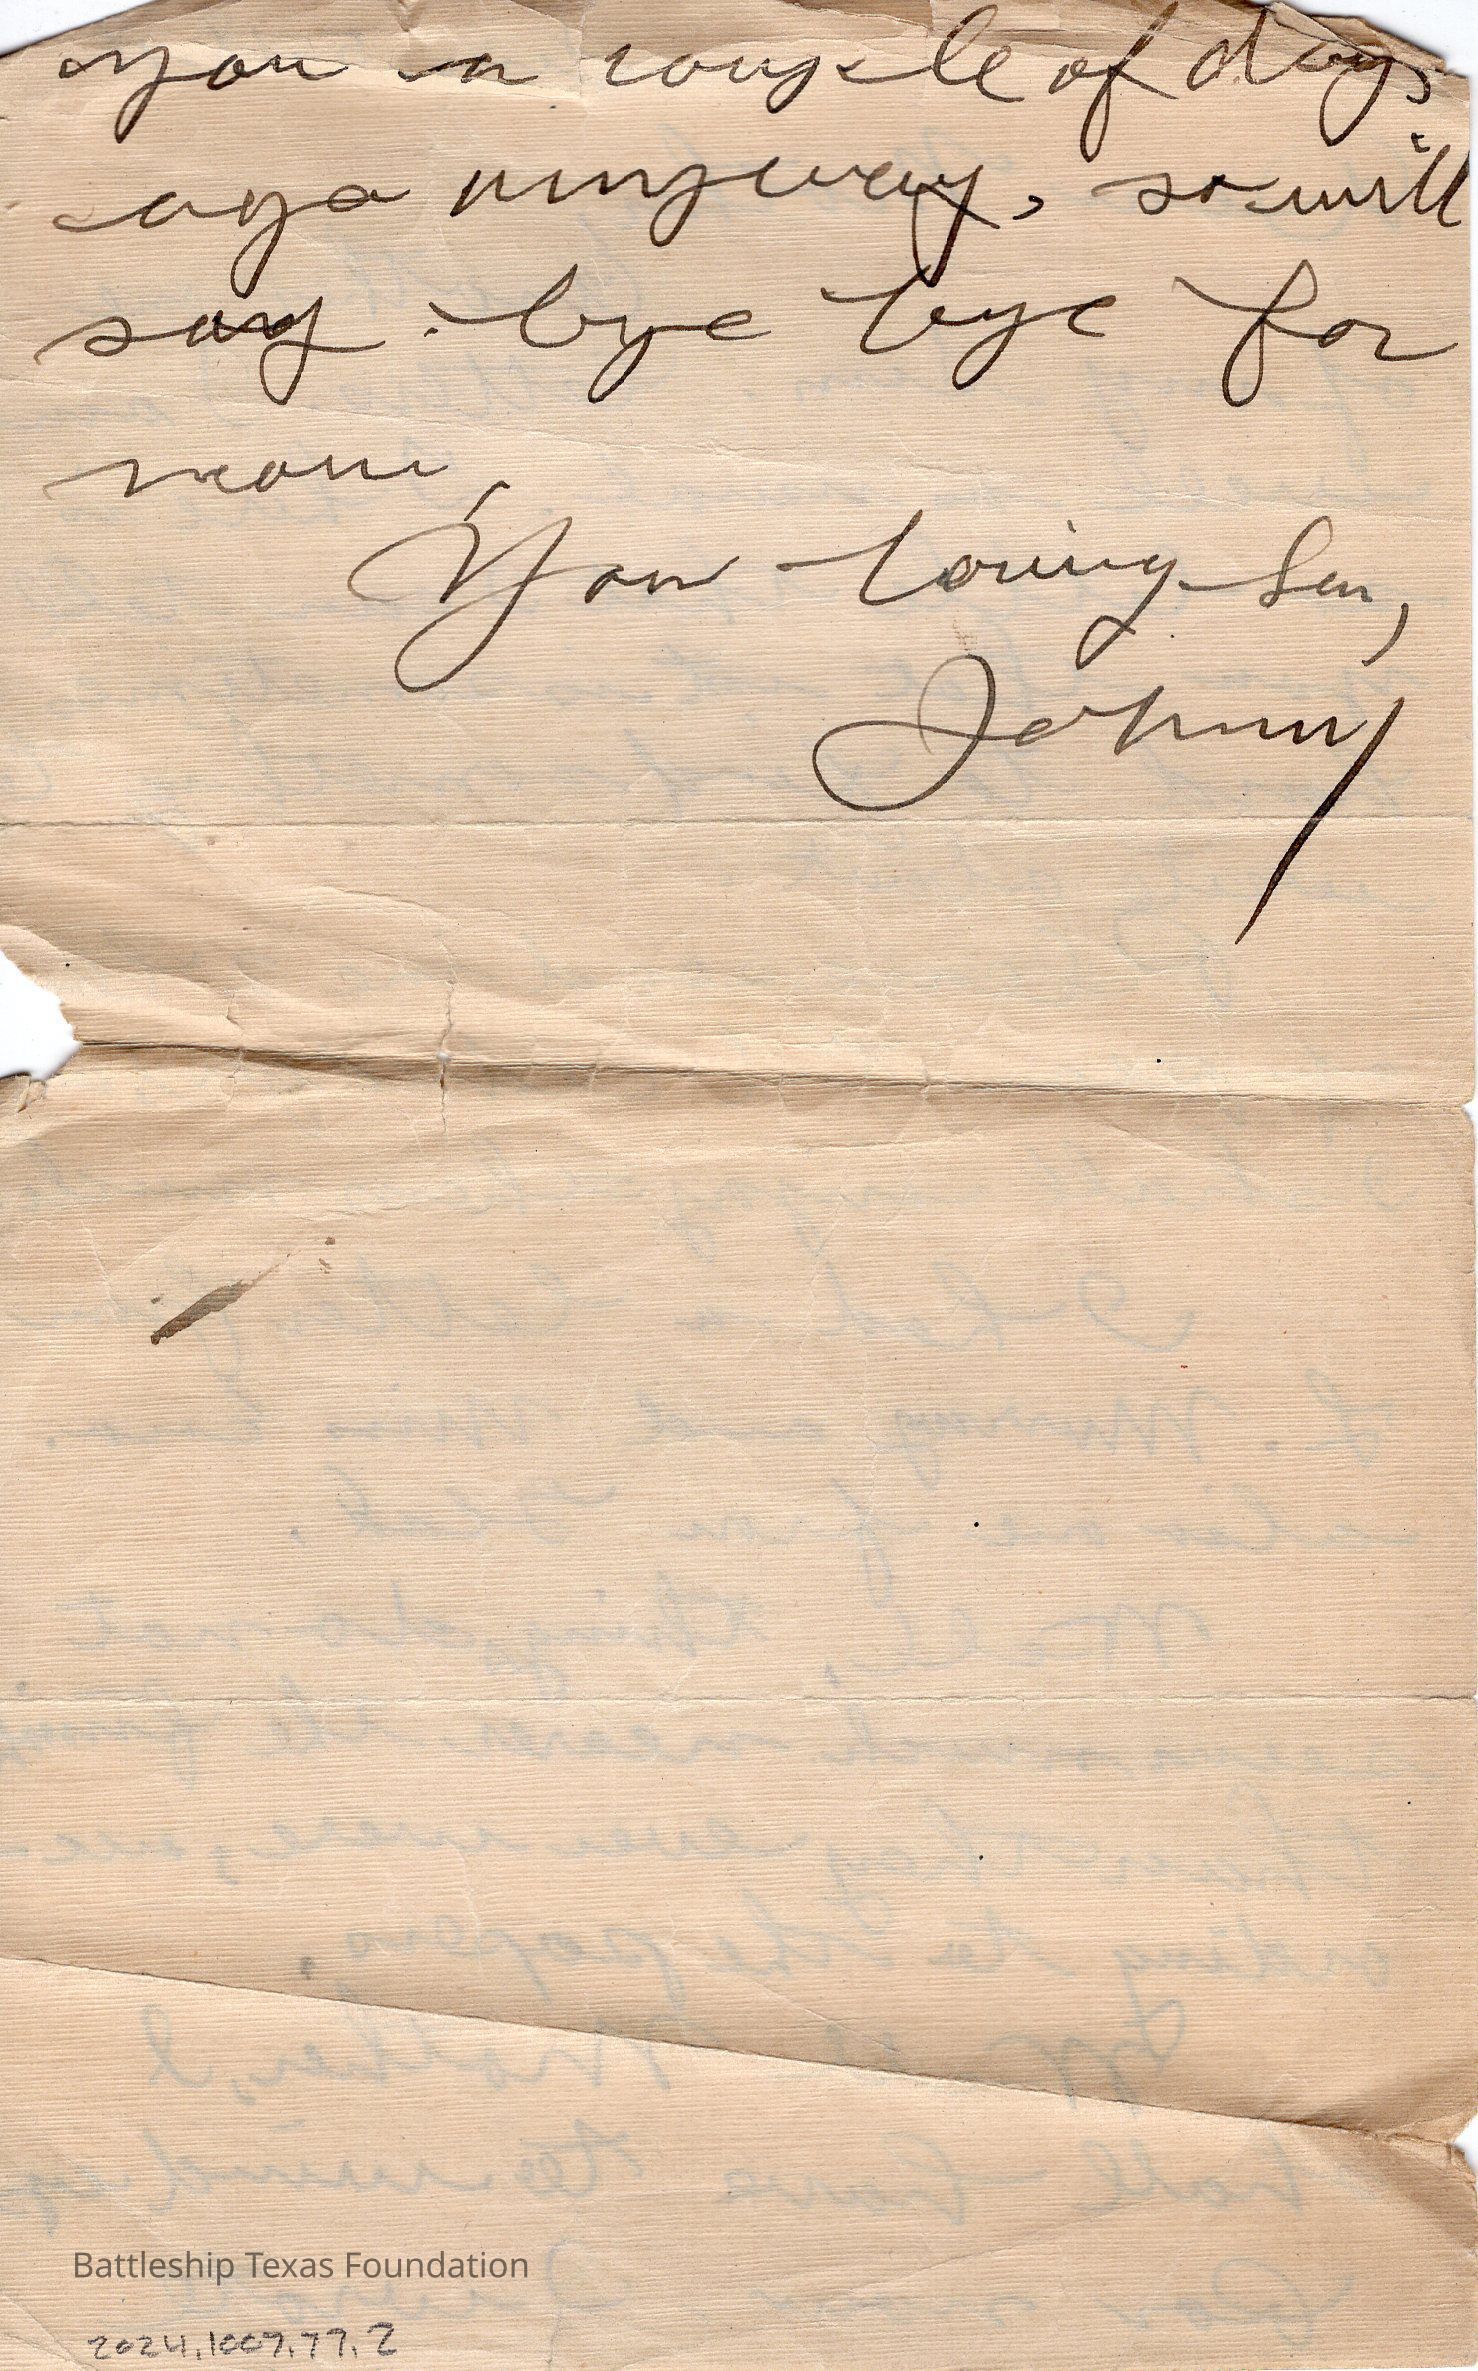 you a couple of days
ago anyway, so will
say bye bye for
now,
Your loving Son,
Johnny
Battleship Texas Foundation
2024.1007.77.2